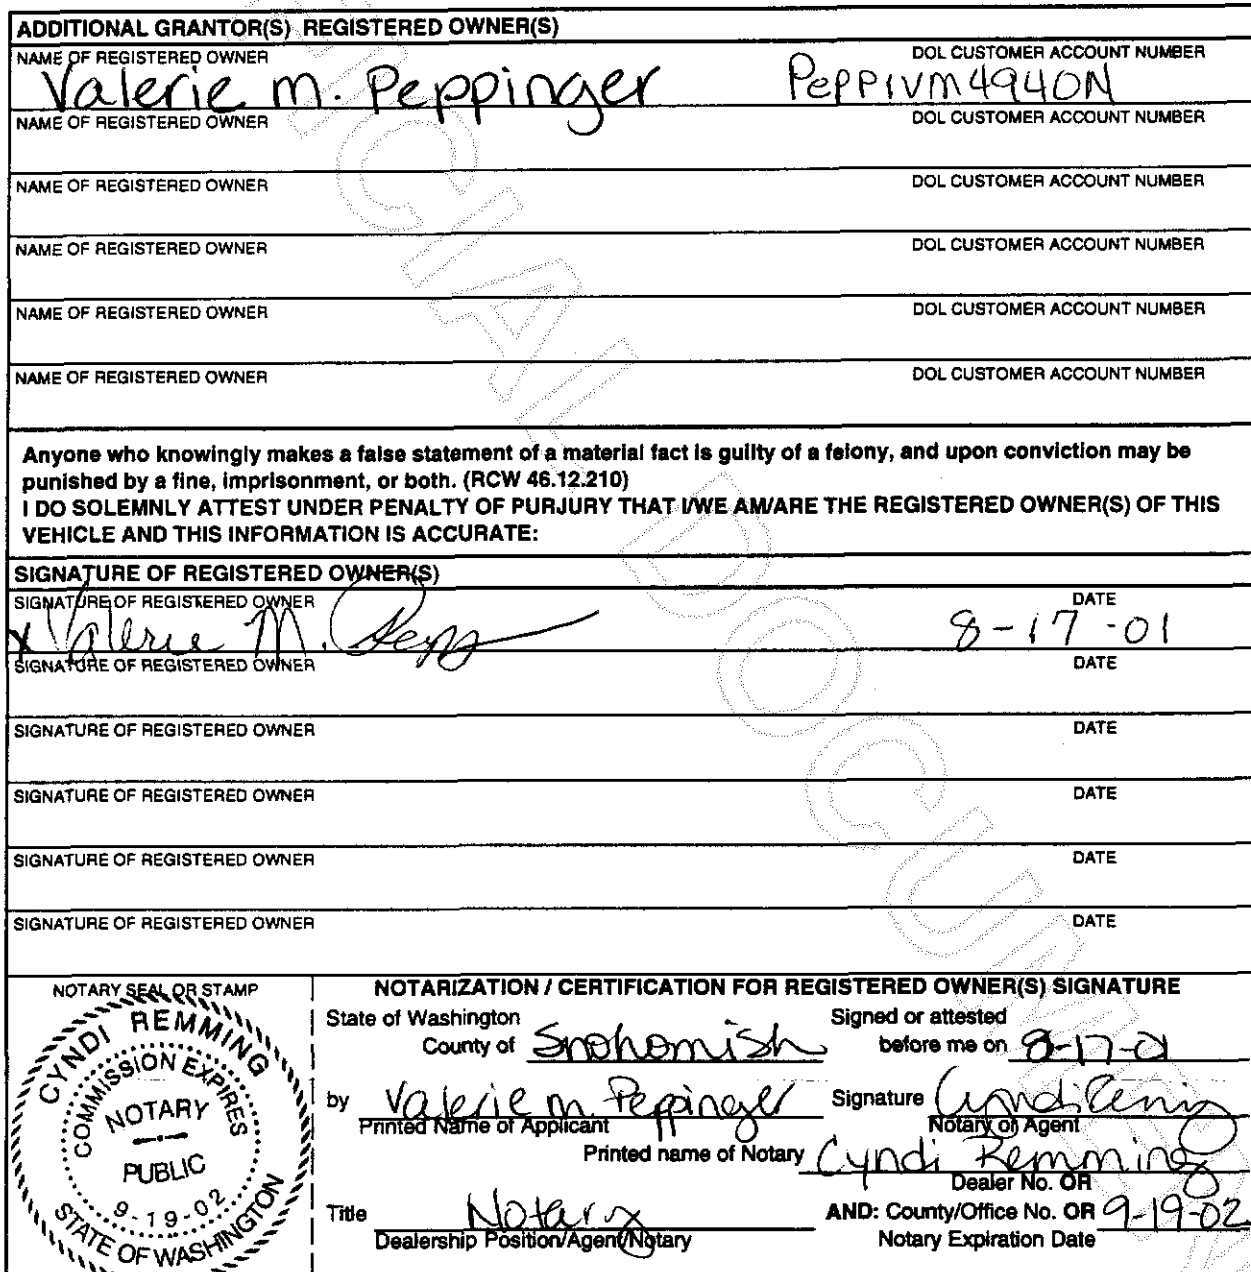 ADDITIONAL GRANTOR(S) REGISTERED OWNER(S)
NAME OF REGISTERED OWNER DOL CUSTOMER ACCOUNT NUMBER
Valerie m. Peppinger PEPPIVM494ON
NAME OF REGISTERED OWNER DOL CUSTOMER ACCOUNT NUMBER
NAME OF REGISTERED OWNER DOL CUSTOMER ACCOUNT NUMBER
NAME OF REGISTERED OWNER DOL CUSTOMER ACCOUNT NUMBER
NAME OF REGISTERED OWNER DOL CUSTOMER ACCOUNT NUMBER
NAME OF REGISTERED OWNER DOL CUSTOMER ACCOUNT NUMBER
Anyone who knowingly makes a false statement of a material fact is guilty of a felony, and upon conviction may be
punished by a fine, imprisonment, or both. (RCW 46.12.210)
I DO SOLEMNLY ATTEST UNDER PENALTY OF PURJURY THAT I/WE AM/ARE THE REGISTERED OWNER(S) OF THIS
VEHICLE AND THIS INFORMATION IS ACCURATE:
SIGNATURE OF REGISTERED OWNER(S)
SIGNATURE OF REGISTERED OWNER DATE
x Valerie M. 8-17-01
SIGNATURE OF REGISTERED OWNER DATE
SIGNATURE OF REGISTERED OWNER DATE
SIGNATURE OF REGISTERED OWNER DATE
SIGNATURE OF REGISTERED OWNER DATE
SIGNATURE OF REGISTERED OWNER DATE
NOTARY SEAL OR STAMP
CYNDI REMMING
COMMISSION EXPIRES
NOTARY
PUBLIC
9-19-02
STATE OF WASHINGTON
NOTARIZATION / CERTIFICATION FOR REGISTERED OWNER(S) SIGNATURE
State of Washington Signed or attested
County of Snohomish before me on 8-17-01
by Valerie m. Peppinger Signature
Printed Name of Applicant Notary or Agent
Printed name of Notary Cyndi Remming
Dealer No. OR
Title Notary AND: County/Office No. OR 9-19-02
Dealership Position/Agent/Notary Notary Expiration Date